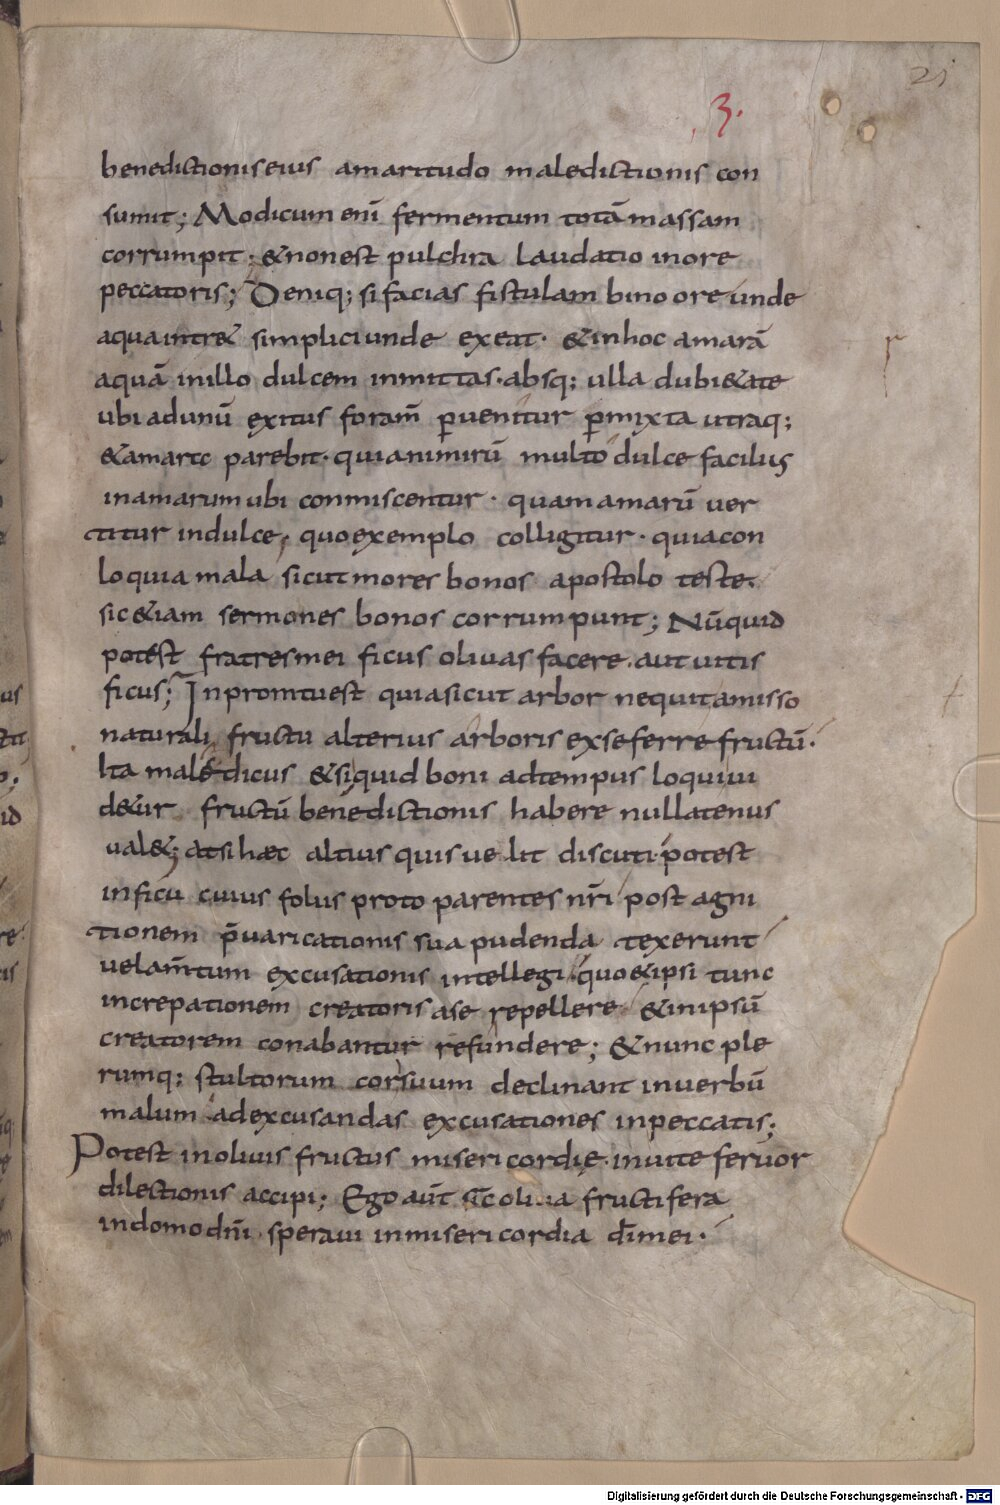 21
3.
benedictionis eius amaritudo maledictionis con
sumit; Modicum eni̅ fermentum tota̅ massam
corrumpit. & non est pulchra laudatio in ore
peccatoris; Deniq; si facias fistulam bino ore unde
aqua intr& simplici unde exeat. & in hoc amara̅
aqua̅ in illo dulcem inmittas. absq; ulla dubi&ate
ubi ad unu̅ exitus foram̅ p̅uenitur p̅mixta utraq;
& amare parebit. quia nimiru̅ multo dulce facilius
in amarum ubi conmiscentur. quam amaru̅ ver
titur in dulce, quo exemplo colligitur. quia con
loquia mala sicut mores bonos apostolo teste.
sic &iam sermones bonos corrumpunt; Nu̅quid
potest fratres mei ficus olivas facere. aut uitis
ficus; In promtu est quia sicut arbor nequit amisso
naturali fructu alterius arboris ex se ferre fructu̅.
Ita maledicus & siquid boni ad tempus loqui ui
de&ur fructu̅ benedictionis habere nullatenus
ual&; at si haec altius quis uelit discuti potest
in ficu cuius folus proto parentes nr̅i post agni
tionem p̅uaricationis sua pudenda texerunt
uelam̅tum excusationis intellegi. quo & ipsi tunc
increpationem creatoris a se repellere & in ipsu̅
creatorem conabantur refundere; & nunc ple
rumq; stultorum cor suum declinant in uerbu̅
malum ad excusandas excusationes in peccatis;
Potest in oliuis fructus misericordię. in uite feruor
dilectionis accipi; Ego aut̅ sic̅ oliua fructifera
in domo dn̅i speraui in misericordia di̅ mei.
Digitalisierung gefördert durch die Deutsche Forschungsgemeinschaft - DFG